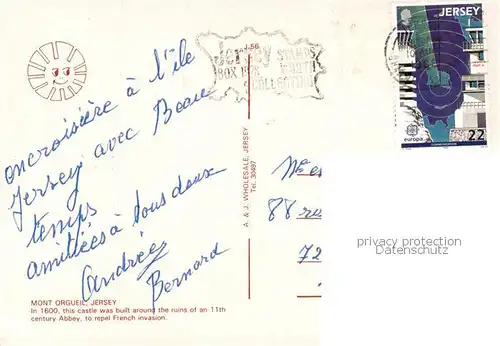 J-56
Jersey
STAMPS
BOX
COLLECTION
JERSEY
europa
22
A. & J. WHOLESALE, JERSEY
Tel. 30497
en croisière à l'île
Jersey avec Beau
temps
amitiés à tous deux
Andrée
Bernard
88 ru
72
privacy protection
Datenschutz
MONT ORGUEIL, JERSEY
In 1600, this castle was built around the ruins of an 11th
century Abbey, to repel French invasion.